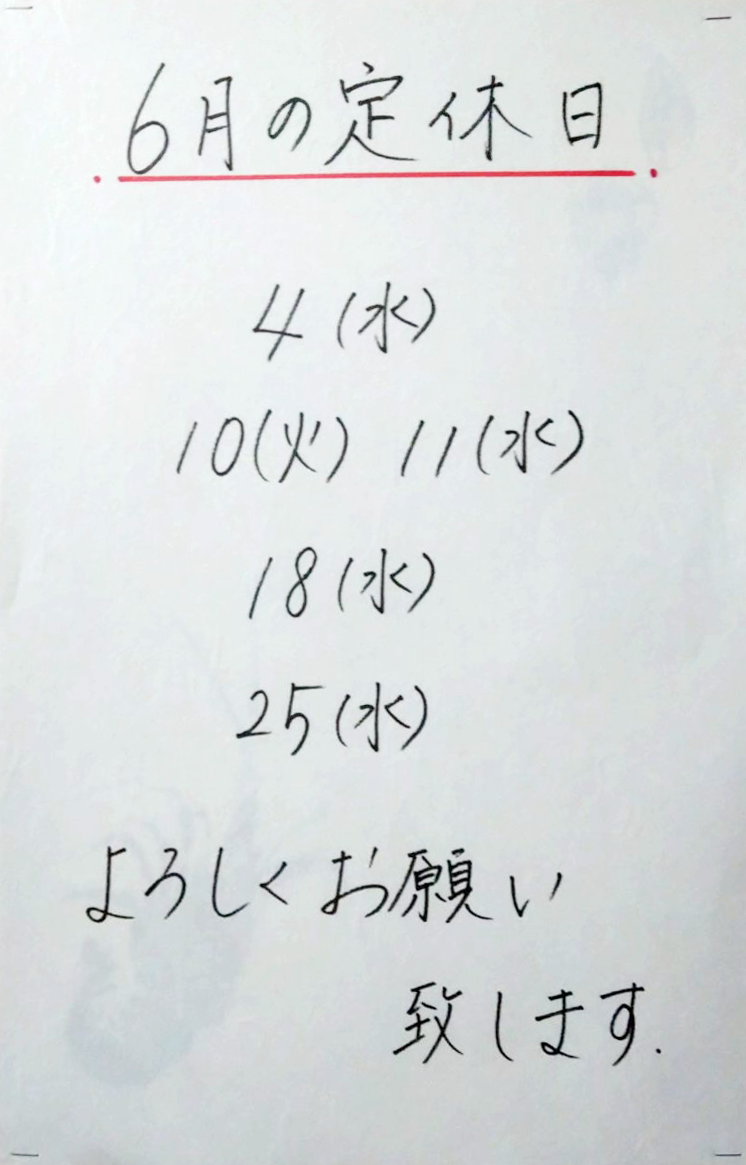 6月の定休日
4(水)
10(火) 11(水)
18(水)
25(水)
よろしくお願い
致します.